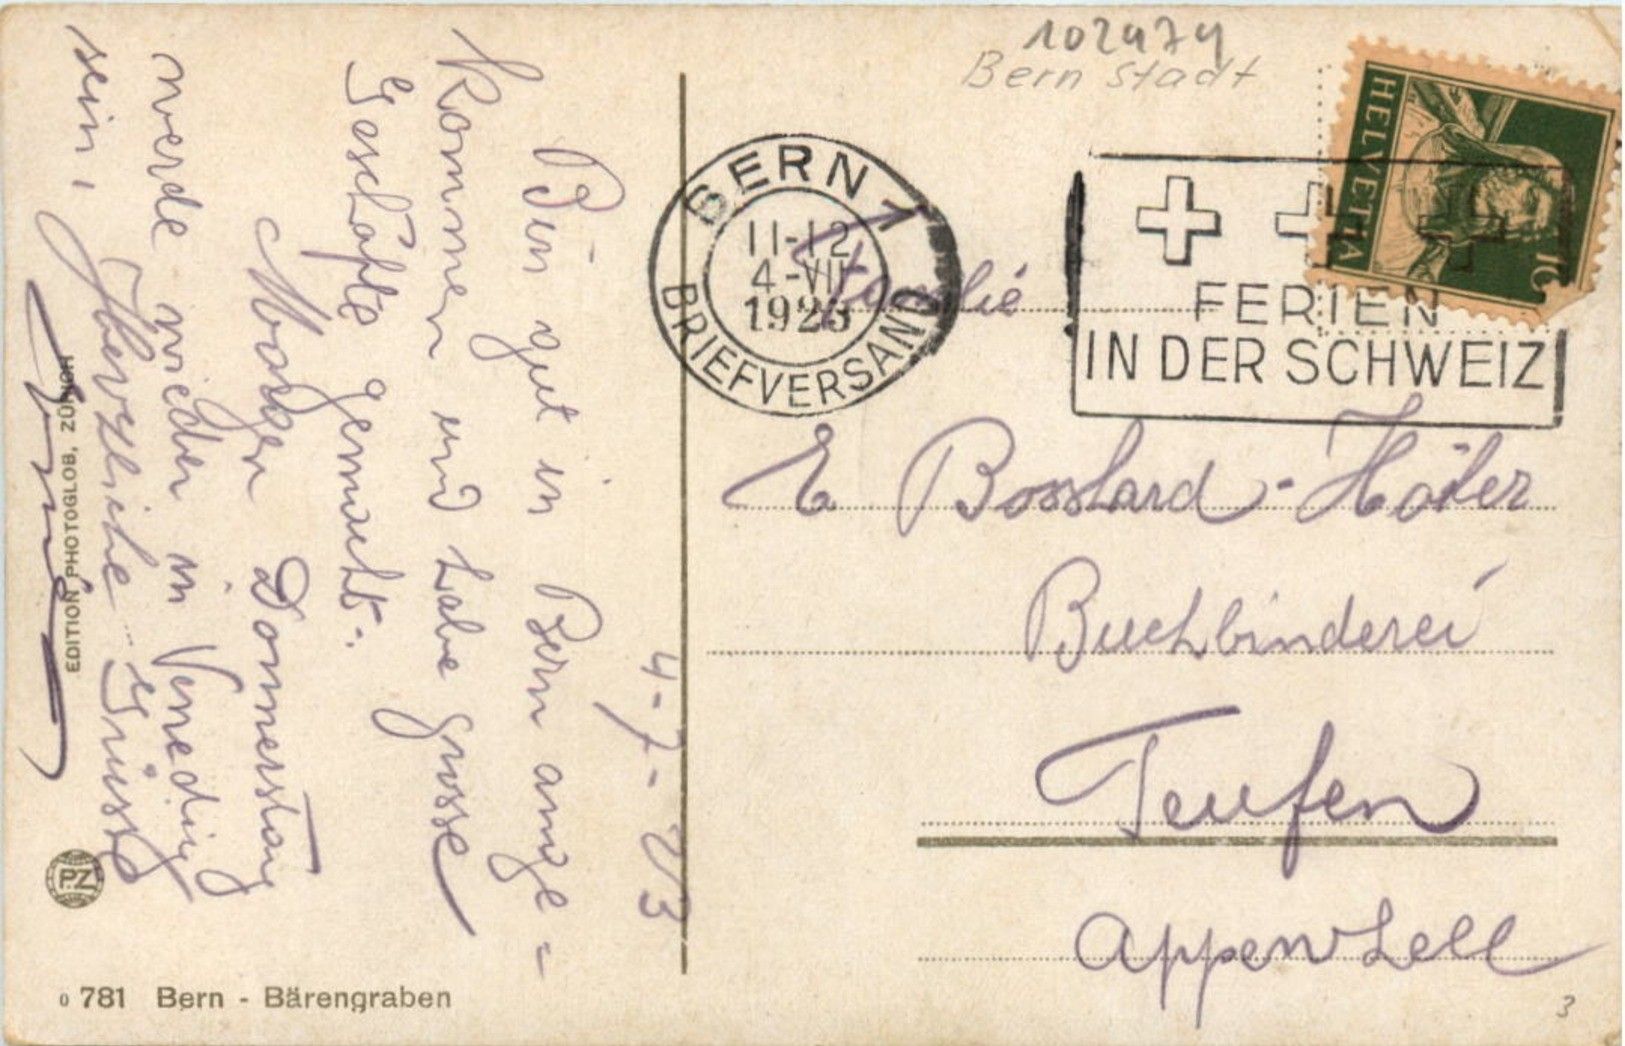 102474
Bern Stadt
HELVETIA
10
BERN 1
11-12
4-VII
1923
BRIEFVERSAND
FERIEN
IN DER SCHWEIZ
4-7-23
Bin gut in Bern ange=
kommen und habe grosse
Geschäfte gemacht.
Morgen Donnerstag
werde wieder in Venedig
sein,
Herzliche Grüsse
Familie
E Bosshard-Hofer
Buchbinderei
Teufen
Appenzell
EDITION PHOTOGLOB, ZÜRICH
PZ
0 781 Bern - Bärengraben
3